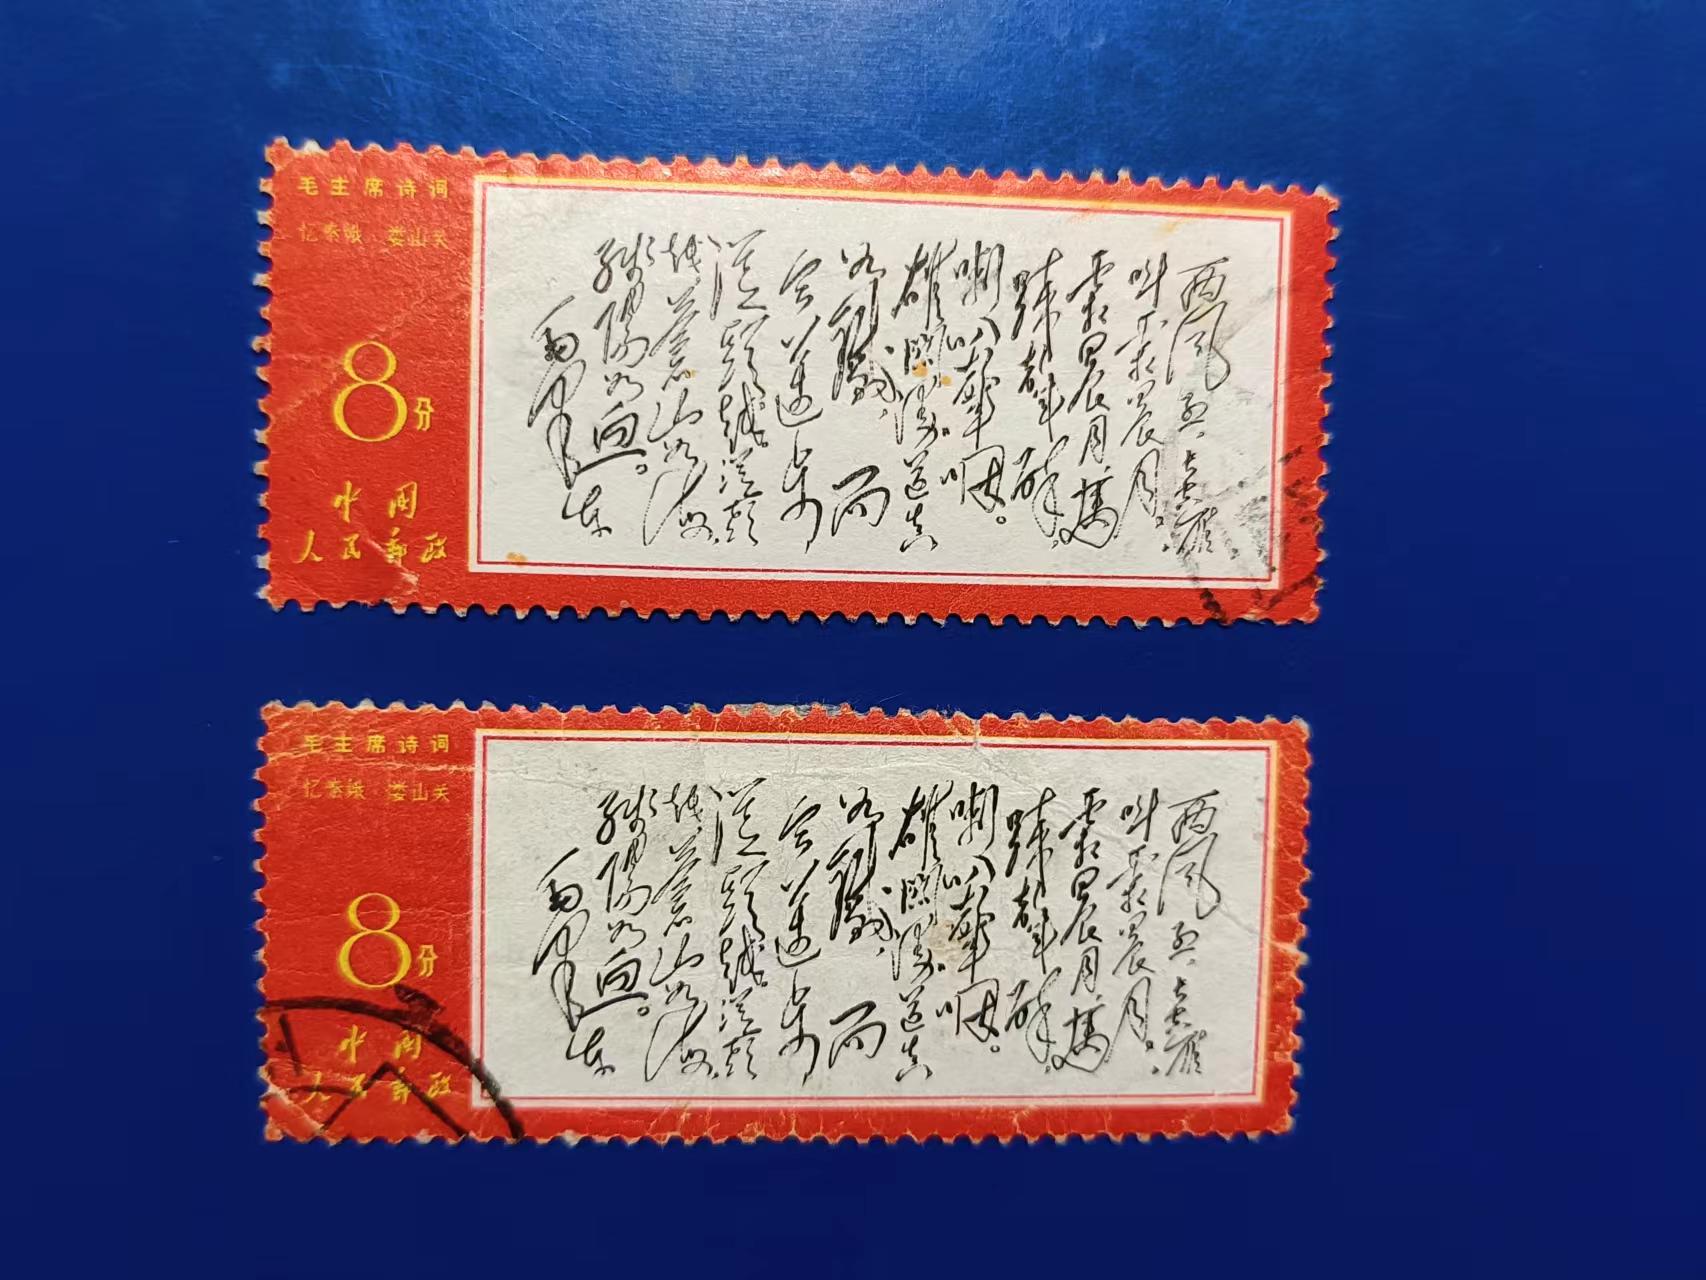 毛主席诗词
忆秦娥 娄山关
8分
中国
人民邮政
西风烈，长空雁
叫霜晨月。
霜晨月，马
蹄声碎，
喇叭声咽。
雄关漫道真
如铁，而
今迈步
从头越。从头
越，苍山如海，
残阳如血。
毛泽东
毛主席诗词
忆秦娥 娄山关
8分
中国
人民邮政
西风烈，长空雁
叫霜晨月。
霜晨月，马
蹄声碎，
喇叭声咽。
雄关漫道真
如铁，而
今迈步
从头越。从头
越，苍山如海，
残阳如血。
毛泽东